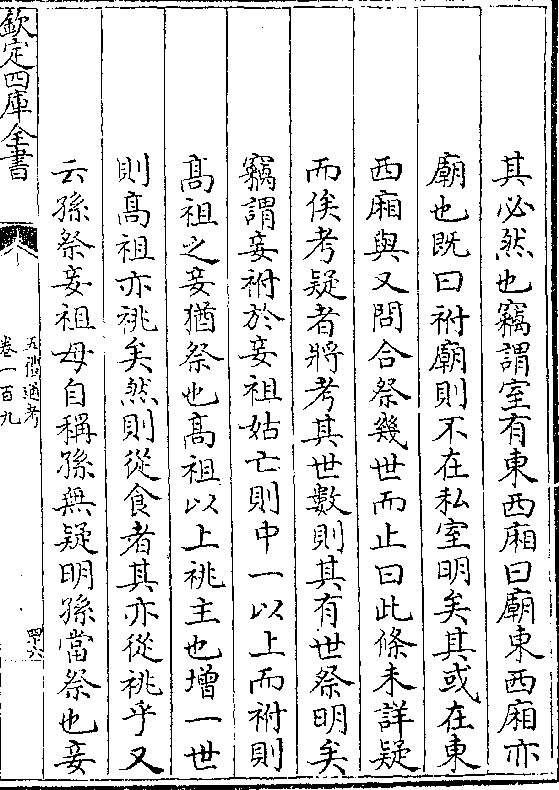 其必然也竊謂室有東西廂曰廟東西廂亦
廟也既曰祔廟則不在私室明矣其或在東
西廂與又問合祭幾世而止曰此條未詳疑
而俟考疑者將考其世數則其有世祭明矣
竊謂妾祔於妾祖姑亡則中一以上而祔則
髙祖之妾猶祭也髙祖以上祧主也增一世
則髙祖亦祧矣然則從食者其亦從祧乎又
云孫祭妾祖母自稱孫無疑明孫當祭也妾
欽定四庫全書
五禮通考
卷一百九
四十六